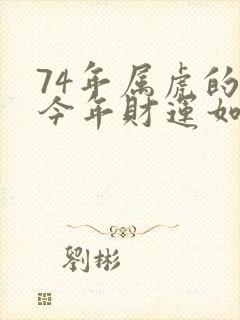 74年属虎的
今年財運如
劉彬